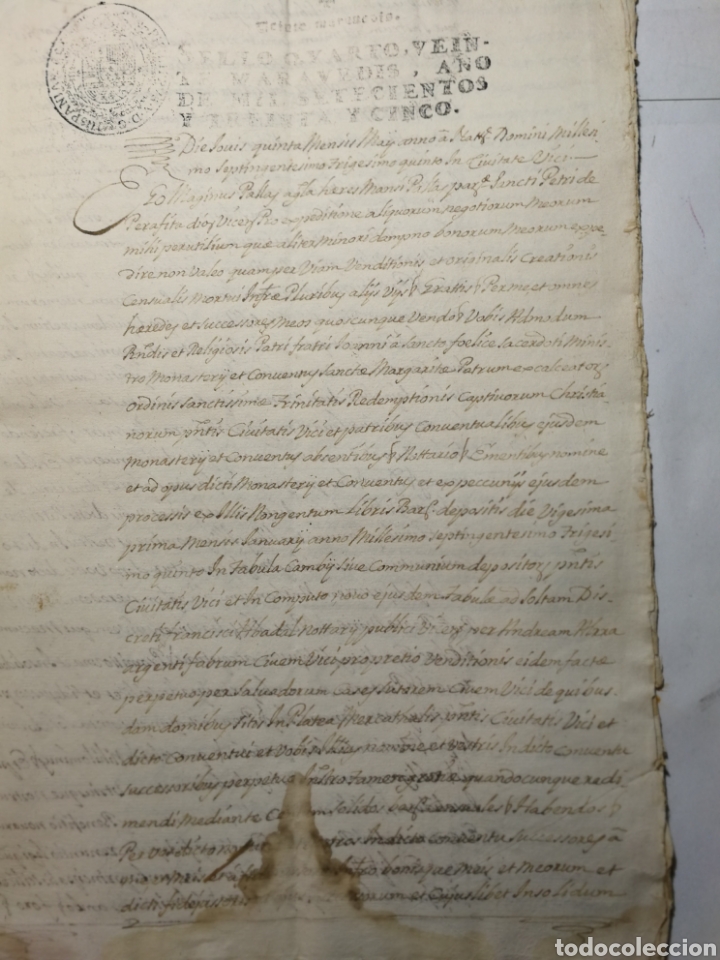 SELLO QVARTO, VEIN-
T MARAVEDIS, AÑO
DE MIL SETECIENTOS
Y TREINTA Y CINCO.
HISPANIAR
Die Jovis quinta Mensis Maij anno a Natte Domini Millesi
mo septingentesimo Trigesimo quinto In Civitate Vici
Ego Maginus Pallas agla hæres Mansi Pallas parœ Sancti Petri de
Perafita dios Vicen Pro expeditione aliquorum negotiorum Meorum
mihi perutilium quæ aliter Minori dampno bonorum Meorum expe
dire non Valeo quam per Viam Venditionis et originalis Creationis
Censualis Mortui Infræ Pluribus alijs Vijs Per me et omnes
hæredes et successores Meos quoscunque Vendo Vobis Admodum
Rndis et Religiosis Patri fratri Joanni a Sancto foelice sacerdoti Minis
tro Monasterij et Conventus Sanctæ Margaritæ Patrum excalceator
Ordinis Sanctissimæ Trinitatis Redemptionis Captivorum Christia
norum pntis Civitatis Vici et patribus Conventualibus ejusdem
Monasterij et Conventus absentibus Nottario Ementibus nomine
et ad opus dicti Monasterij et Conventus et ex peccunijs ejusdem
processis ex Illis Nongentum Libris Bar depositis die Vigesima
prima Mensis Januarij anno Millesimo septingentesimo Trigesi
mo quinto In Tabula Cambij sive Communium depositor pntis
Civitatis Vici et In Computo novo ejusdem Tabulæ ad soltam Dis
creti Francisci Abadal Nottarij publici Vicen per
argenti fabrum Civem Vici pro pretio Venditionis eidem factæ
perpetuo per Salvadorum Cases sutorem Civem Vici de quibus
dam domibus sitis In Platea Mercathalis pntis Civitatis Vici et
dicto Conventui et Vobis nomine et Vestris In dicto Conventu
successoribus perpetuo tamen gratiæ quandocunque redi
mendi Mediante solidos bar censuales Habendos
Per Vos dicto In dicto conventu successores a
bonisque meis et Meorum et
dicti et Cujuslibet Insolidum
todocoleccion.net